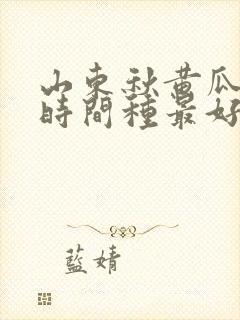 山東秋黃瓜
時間種最好
藍婧